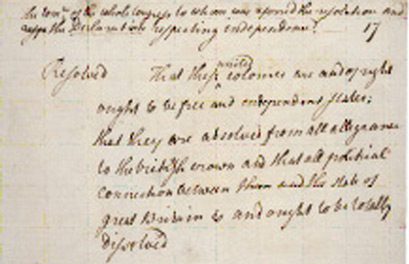 The comee of the whole Congress to whom was referred the resolution and
the Declaration respecting independence. 17
united
Resolved That these colonies are and of right
ought to be free and independent states;
that they are absolved from all allegiance
to the british crown and that all political
connection between them and the state of
great Britain is and ought to be totally
dissolved